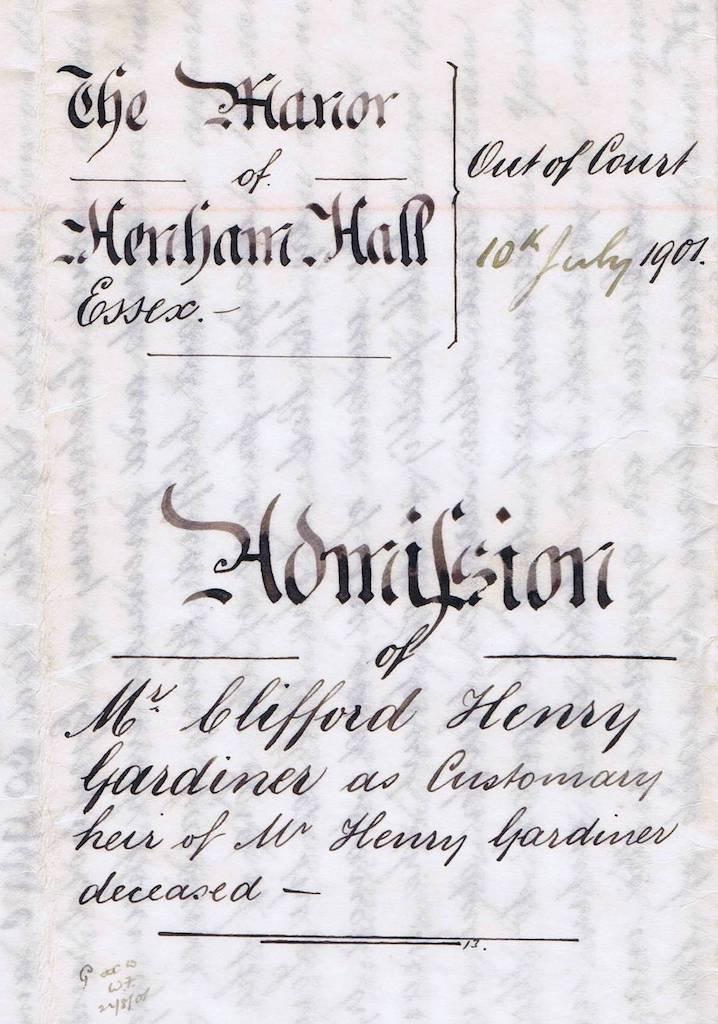 The Manor
of
Henham Hall
Essex. —
Out of Court
10th July 1901.
Admission
of
Mr. Clifford Henry
Gardiner as Customary
heir of Mr Henry Gardiner
deceased —
13.
W.F.